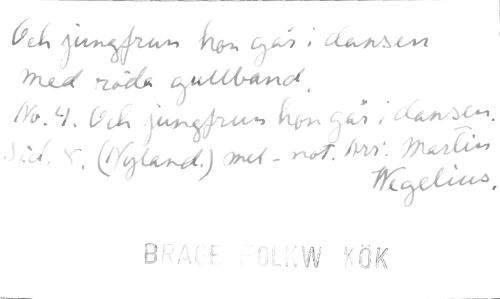 Och jungfrun hon går i dansen
med röda gullband.
No. 4. Och jungfrun hon går i dansen.
Sid. 8. (Nyland.) mel-not. Arr. Martin
Wegelius.
BRAGE FOLKW KÖK